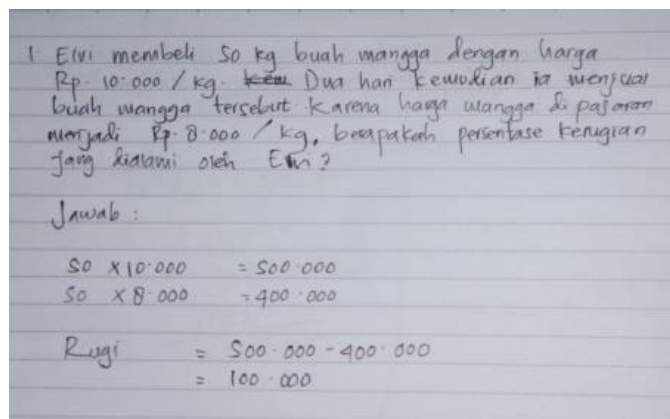 1. Elvi membeli 50 kg buah mangga dengan harga
Rp. 10.000 / kg. Dua hari kemudian ia menjual
buah mangga tersebut karena harga mangga di pasaran
menjadi Rp. 8.000 / kg, berapakah persentase kerugian
yang dialami oleh Elvi?
Jawab :
50 x 10.000 = 500.000
50 x 8.000 = 400.000
Rugi = 500.000 - 400.000
= 100.000